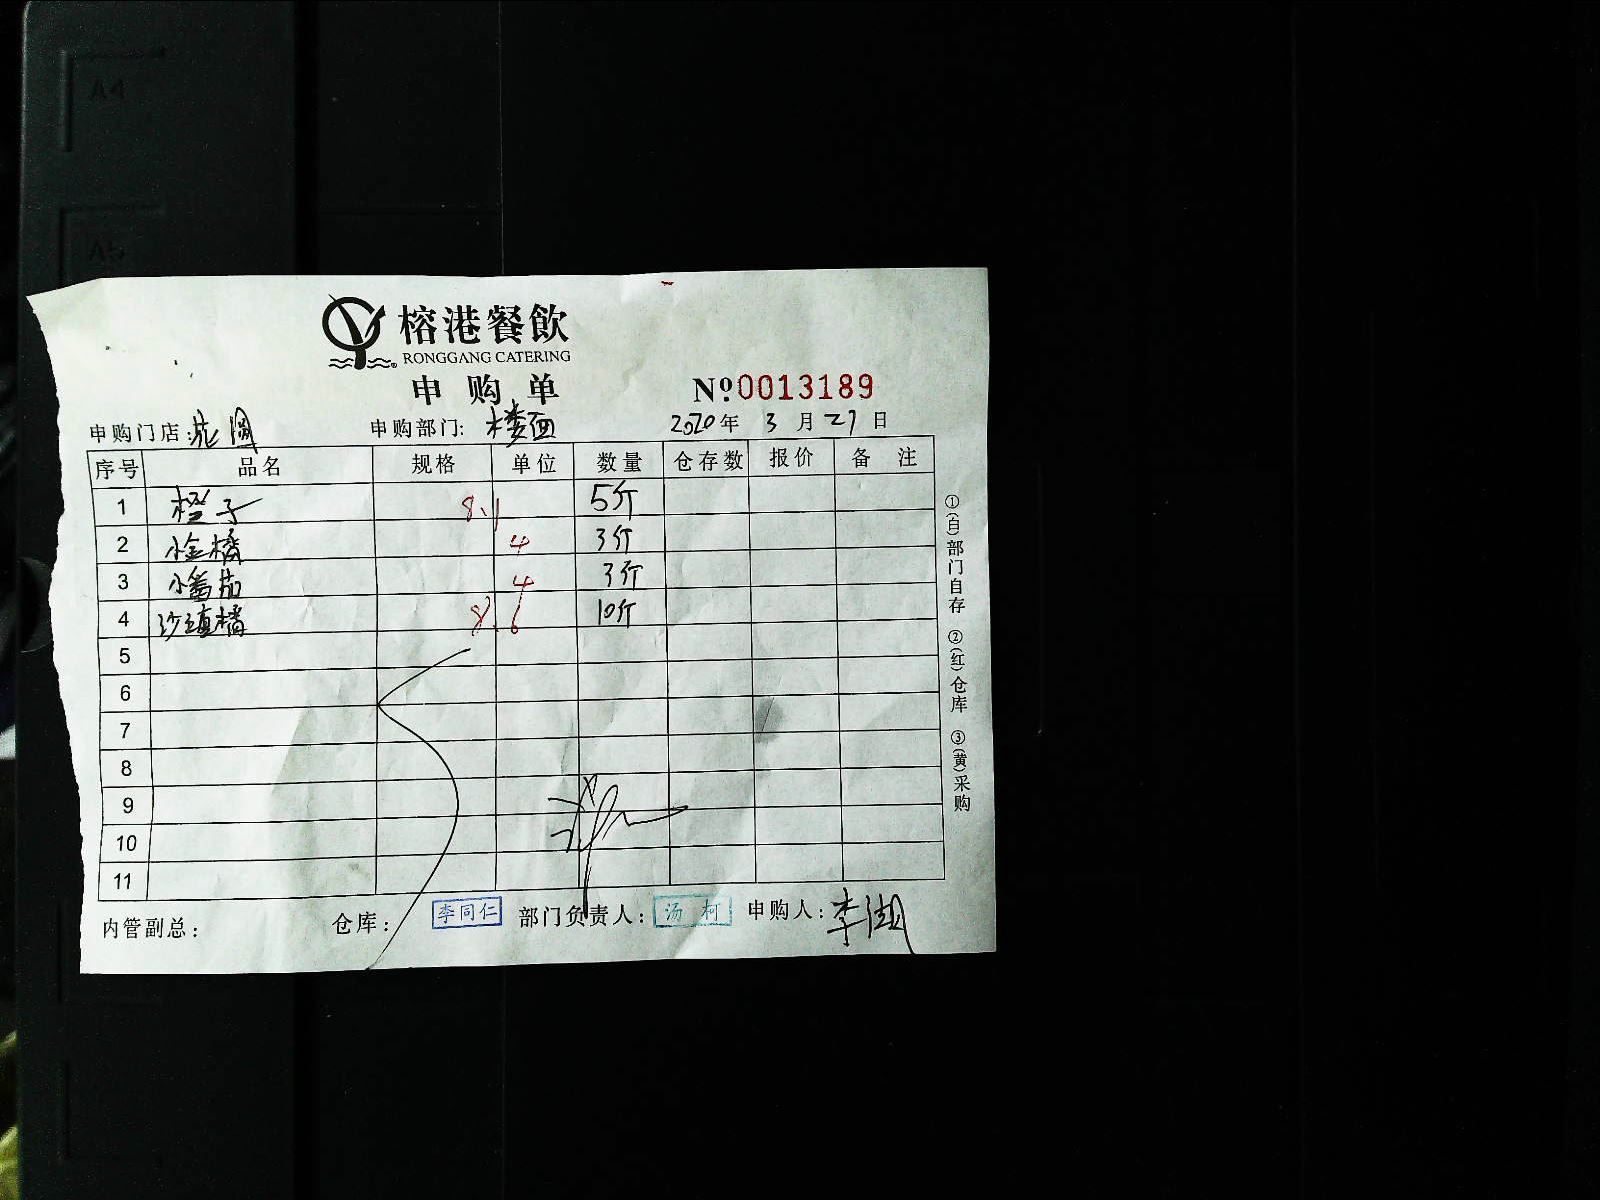 A4
A5
榕港餐飲
RONGGANG CATERING
申购单
№0013189
申购门店: 申购部门: 楼面 2020年3月27日
序号 品名 规格 单位 数量 仓存数 报价 备注
1 橙子 8.1 5斤
2 小金橘 4 3斤
3 小番茄 4 3斤
4 沙塘橘 8.6 10斤
5
6
7
8
9
10
11
内管副总: 仓库: 李同仁 部门负责人: 汤柯 申购人: 李
①(白)部门自存 ②(红)仓库 ③(黄)采购